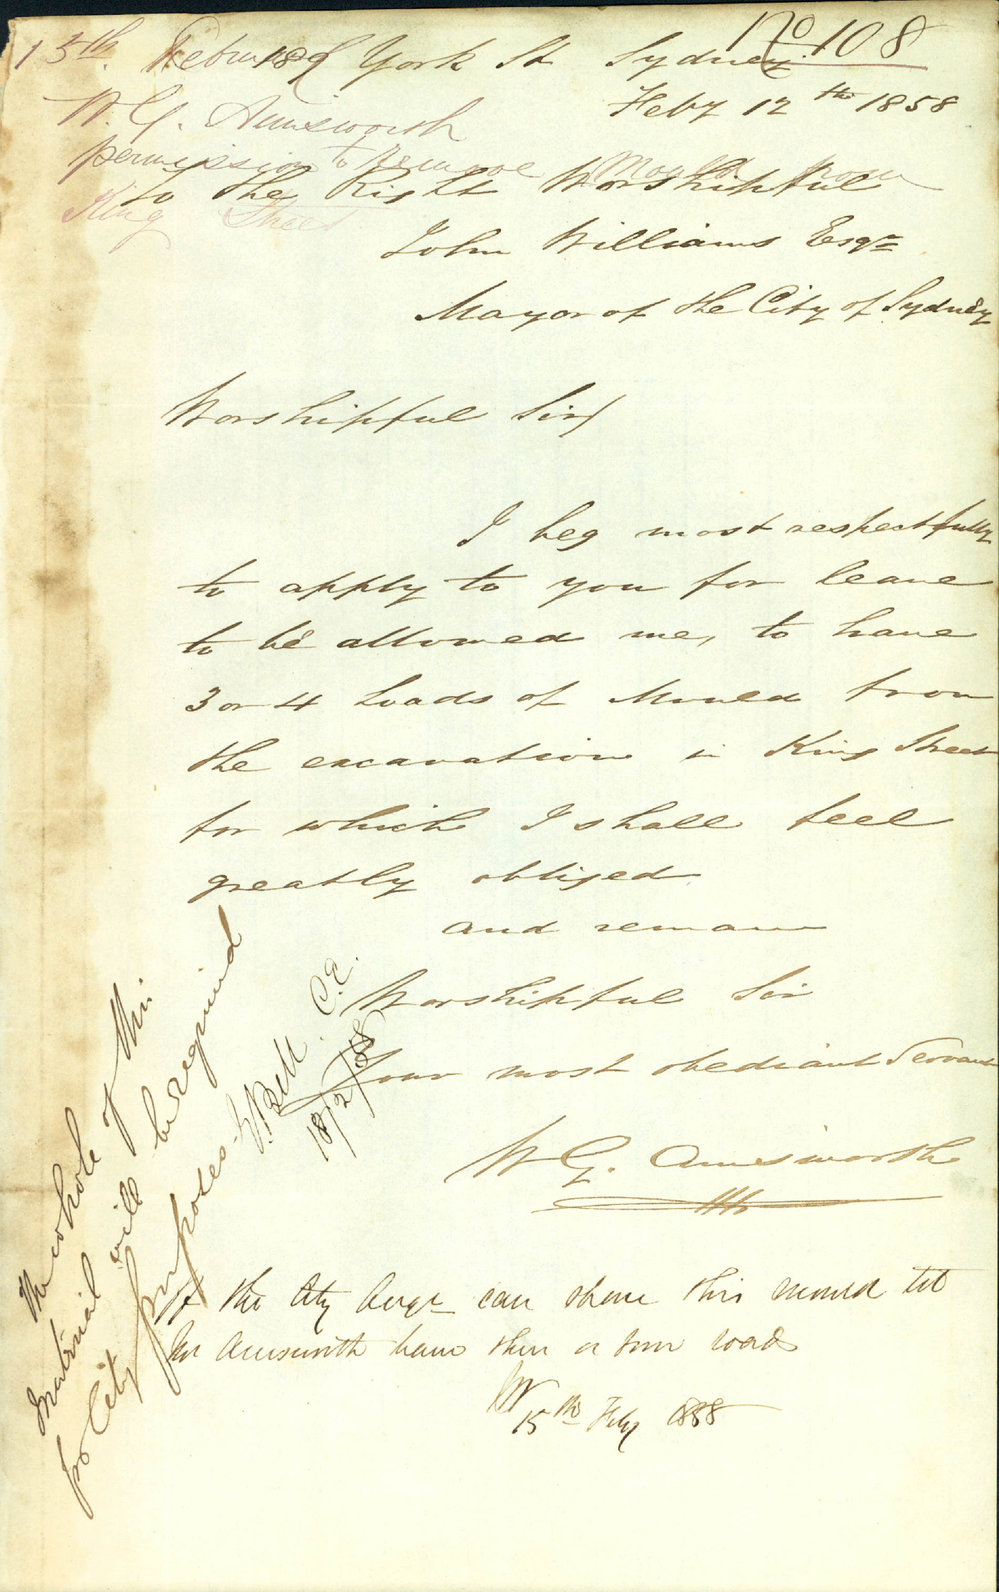 No 108
15th. February
189 York St Sydney
Feby 12th 1858
W. G. Ainsworth
permission to remove Mould from
King Street
To the Right Worshipful
John Williams Esqre
Mayor of the City of Sydney
Worshipful Sir/
I beg most respectfully
to apply to you for leave
to be allowed me, to have
3 or 4 Loads of Mould from
the excavation in King Street
for which I shall feel
greatly obliged
and remain
Worshipful Sir
Your most obediant Servant
W G. Ainsworth
If the City Engr can spare this mould let
Mr Ainsworth have three or four loads
JW
15th Feby 1858
The whole of this
material will be required
for City purposes
E Bell C.E.
18/2/58